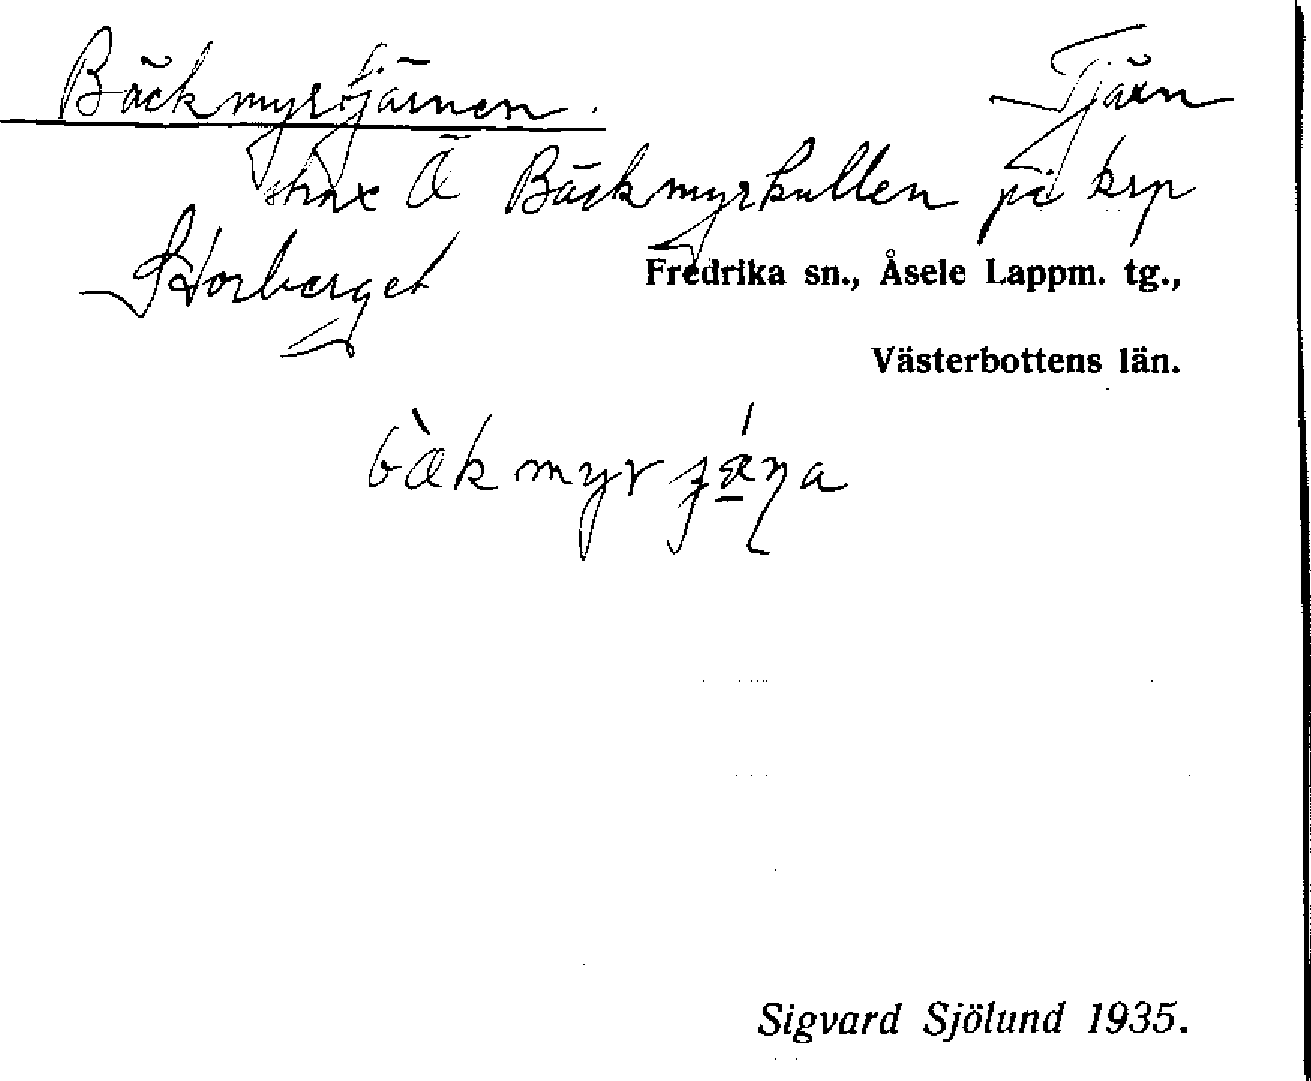 Bäckmyrtjärnen. Tjärn
strax Ö Bäckmyrkullen på krp
Storberget
Fredrika sn., Åsele Lappm. tg.,
Västerbottens län.
Sigvard Sjölund 1935.